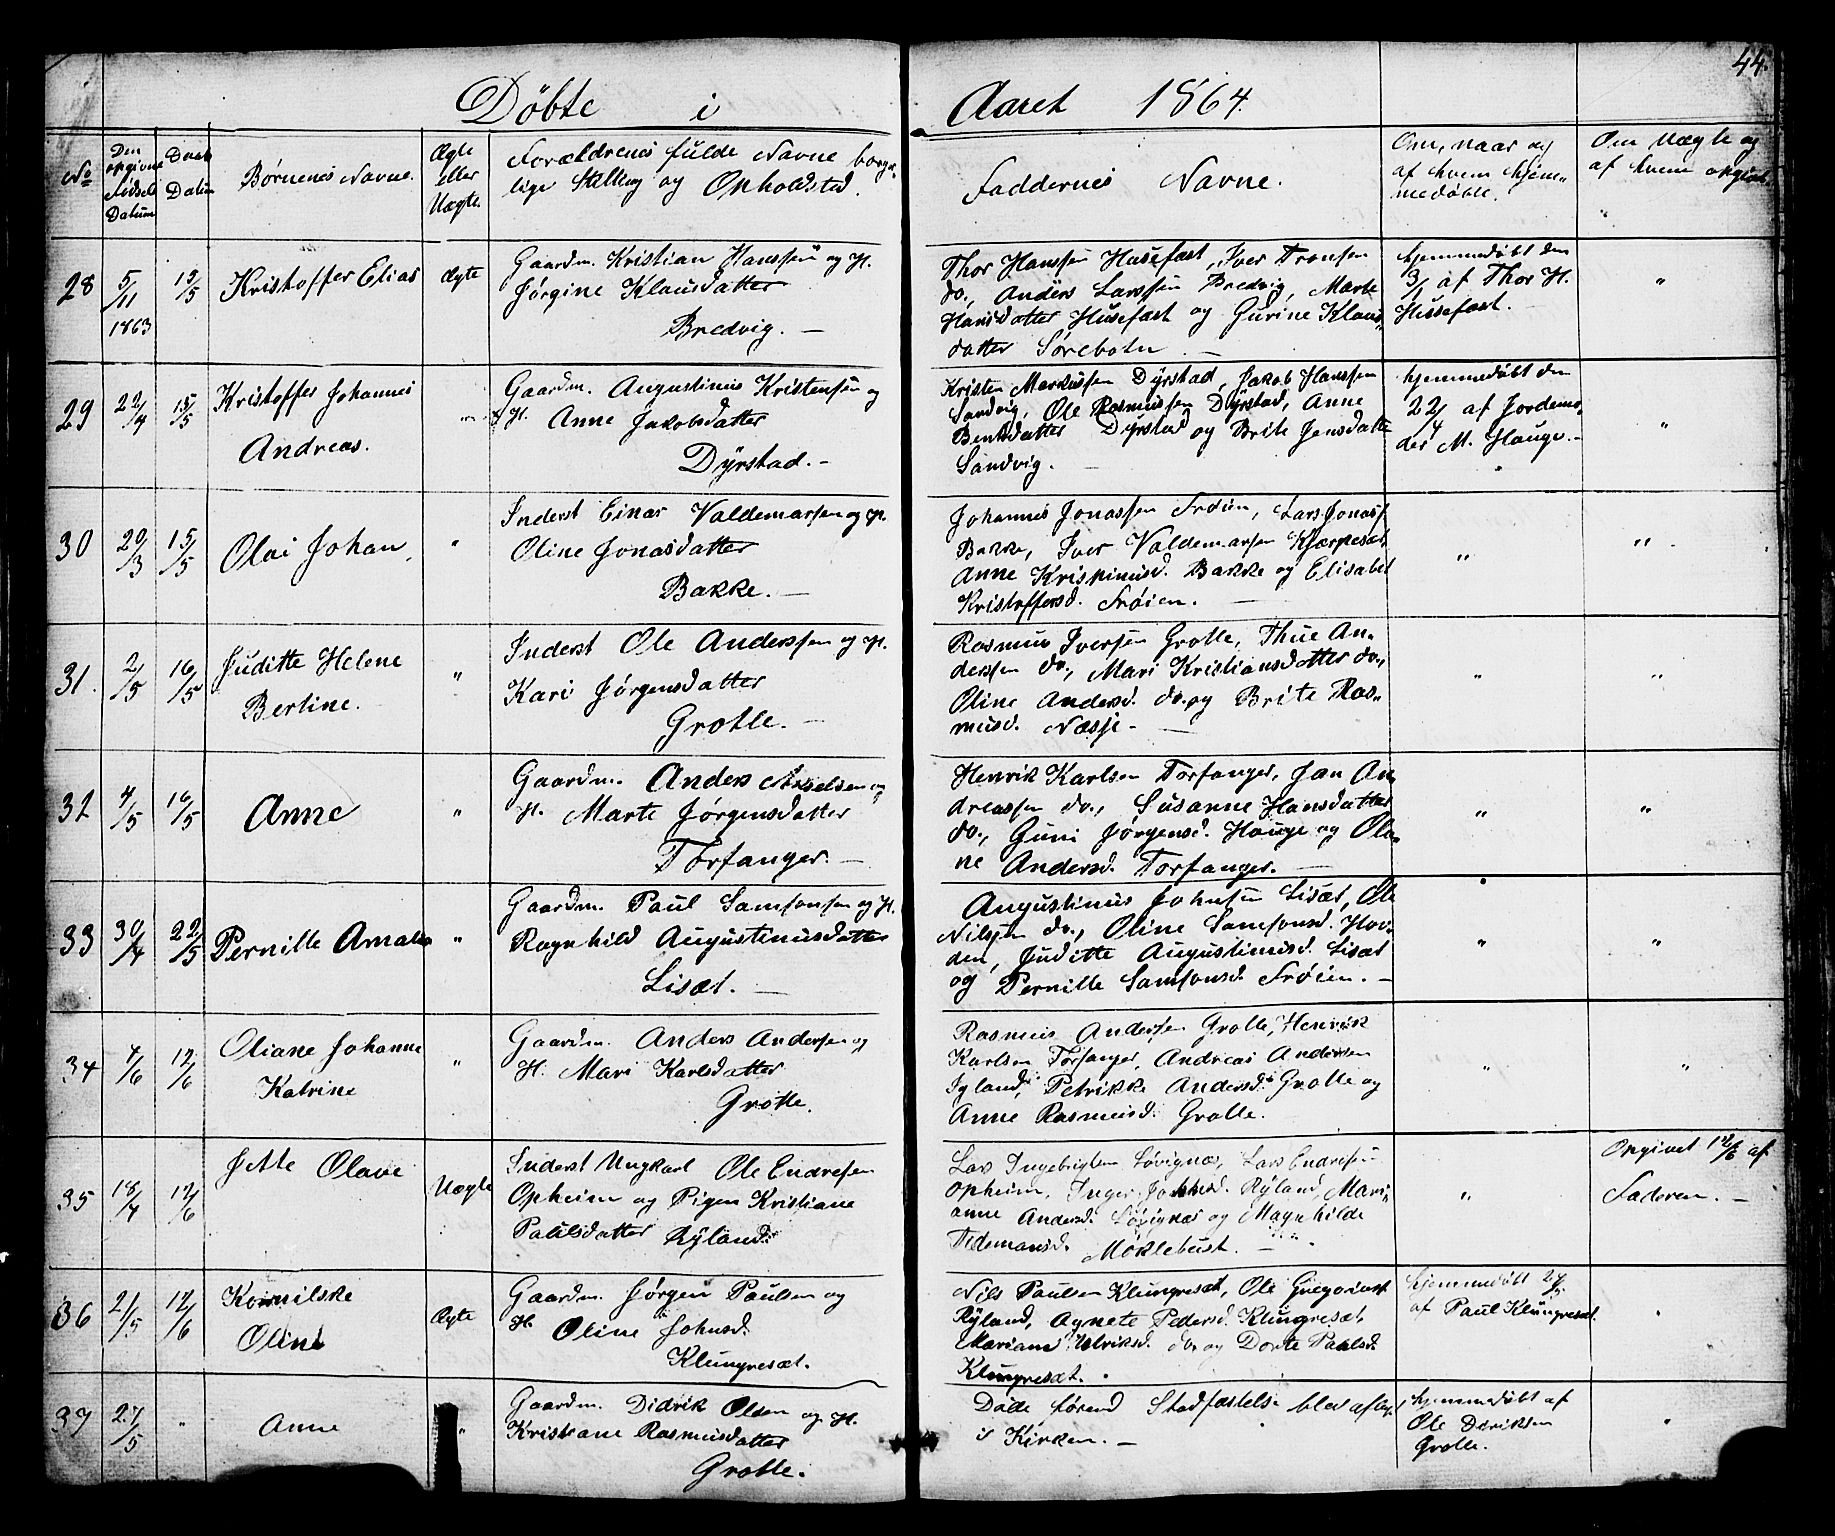 44.
Döbte i Aaret 1864.
No
Den opgivne Födsels Datum
Daabs Datum
Börnenes Navne.
Ægte eller Uægte.
Forældrenes fulde Navne borger-
lige Stilling og Opholdsted.
Faddernes Navne.
Om, naar og
af hvem hjem-
medøbte.
Om Uægte og
af hvem opgivet.
28 5/11 1863 15/5 Kristoffer Elias ægte
Gaardm. Kristian Hanssen og H.
Jörgine Klausdatter
Bredvig. —
Thor Hanssen Husefæst, Iver Tronsen
do., Anders Larssen Bredvig, Marte
Hansdatter Husefæst og Gurine Klaus-
datter Sörebotn —
hjemmedøbt den
3/1 af Thor H.
Husefæst.
"
29 22/4 15/5 Kristoffer Johannes
Andreas.
"
Gaardm. Augustinus Kristensen og
H. Anne Jakobsdatter
Dyrstad. -
Kristen Markussen Dyrstad, Jakob Hanssen
Sandvig, Ole Rasmussen Dyrstad, Anne
Bentsdatter Dyrstad og Brite Jensdatter
Sandvig. —
hjemmedøbt den
22/4 af Jordemo-
der M. Hauge. -
"
30 20/3 15/5 Olai Johan,
"
Inderst Einar Valdemarsen og H.
Oline Jonasdatter
Bakke. —
Johannes Jonassen Fröien, Lars Jonass.
Bakke, Iver Valdemarsen Kjærpesæt,
Anne Krispinusd. Bakke og Elisabet
Kristoffersd. Fröien. —
"
"
31. 2/5 16/5 Juditte Helene
Bertine.
"
Inderst Ole Anderssen og H.
Kari Jörgensdatter
Grotle. —
Rasmus Iversen Grotle, Thue An-
derssen do., Mari Kristiansdatter do.,
Oline Andersd. do. og Brite Ras-
musd. Næsje -
"
"
32 4/5 16/5 Anne
"
Gaardm. Anders Akselsen og
H. Marte Jörgensdatter
Torfanger. —
Henrik Karlsen Torfanger, Jan An-
dreassen do., Susanne Hansdatter
do., Guni Jörgensd. Hauge og Olea-
ne Andersd. Torfanger. —
"
"
33 30/4 22/5 Pernille Amalia
"
Gaardm. Paul Samsonsen og H.
Ragnhild Augustinusdatter
Lisæt. —
Augustinus Johnsen Lisæt, Ole
Nilsen do., Oline Samsonsd. Hovi-
den, Juditte Augustinusd. Lisæt
og Pernille Samsonsd. Fröien. —
"
"
34 4/6 12/6 Oliane Johanne
Katrine
"
Gaardm. Anders Andersen og
H. Mari Karlsdatter
Grotle.
Rasmus Andersen Grotle, Henrik
Karlsen Torfanger, Andreas Andersen
Igland, Petrikke Andersd. Grotle og
Anne Rasmusd. Grotle.
"
"
35 18/4 12/6 Jette Olave
Uægte
Inderst Ungkarl Ole Endresen
Opheim og Pigen Kristiane
Paulsdatter Ryland.
Lars Ingebrigtsen Lövignæs, Lars Endresen
Opheim, Inger Ryland, Mari-
anne Andersd. Lövignæs og Magnhilde
Tedemansd. Möklebust. —
"
Opgivet 12/6 af
Faderen. —
36 21/5 12/6 Kornilske
Oline
Ægte
Gaardm. Jörgen Paulsen og
H. Oline Johnsd.
Klungresæt.
Nils Paulsen Klungresæt, Ole Gregoriuss.
Ryland, Agnete Pedersd. Klungresæt,
Mariane Ulriksd. do. og Dorte Paulsd.
Klungresæt.
hjemmedøbt 24/5
af Paul Klungresæt.
"
37 27/5 " Anne
"
Gaardm. Didrik Olsen og H.
Kristiane Rasmusdatter
Grotle.
Döde förend Stadfæstelse blev aflagt
i Kirken. —
hjemmedøbt af
Ole Deriksen
Grotle.
"